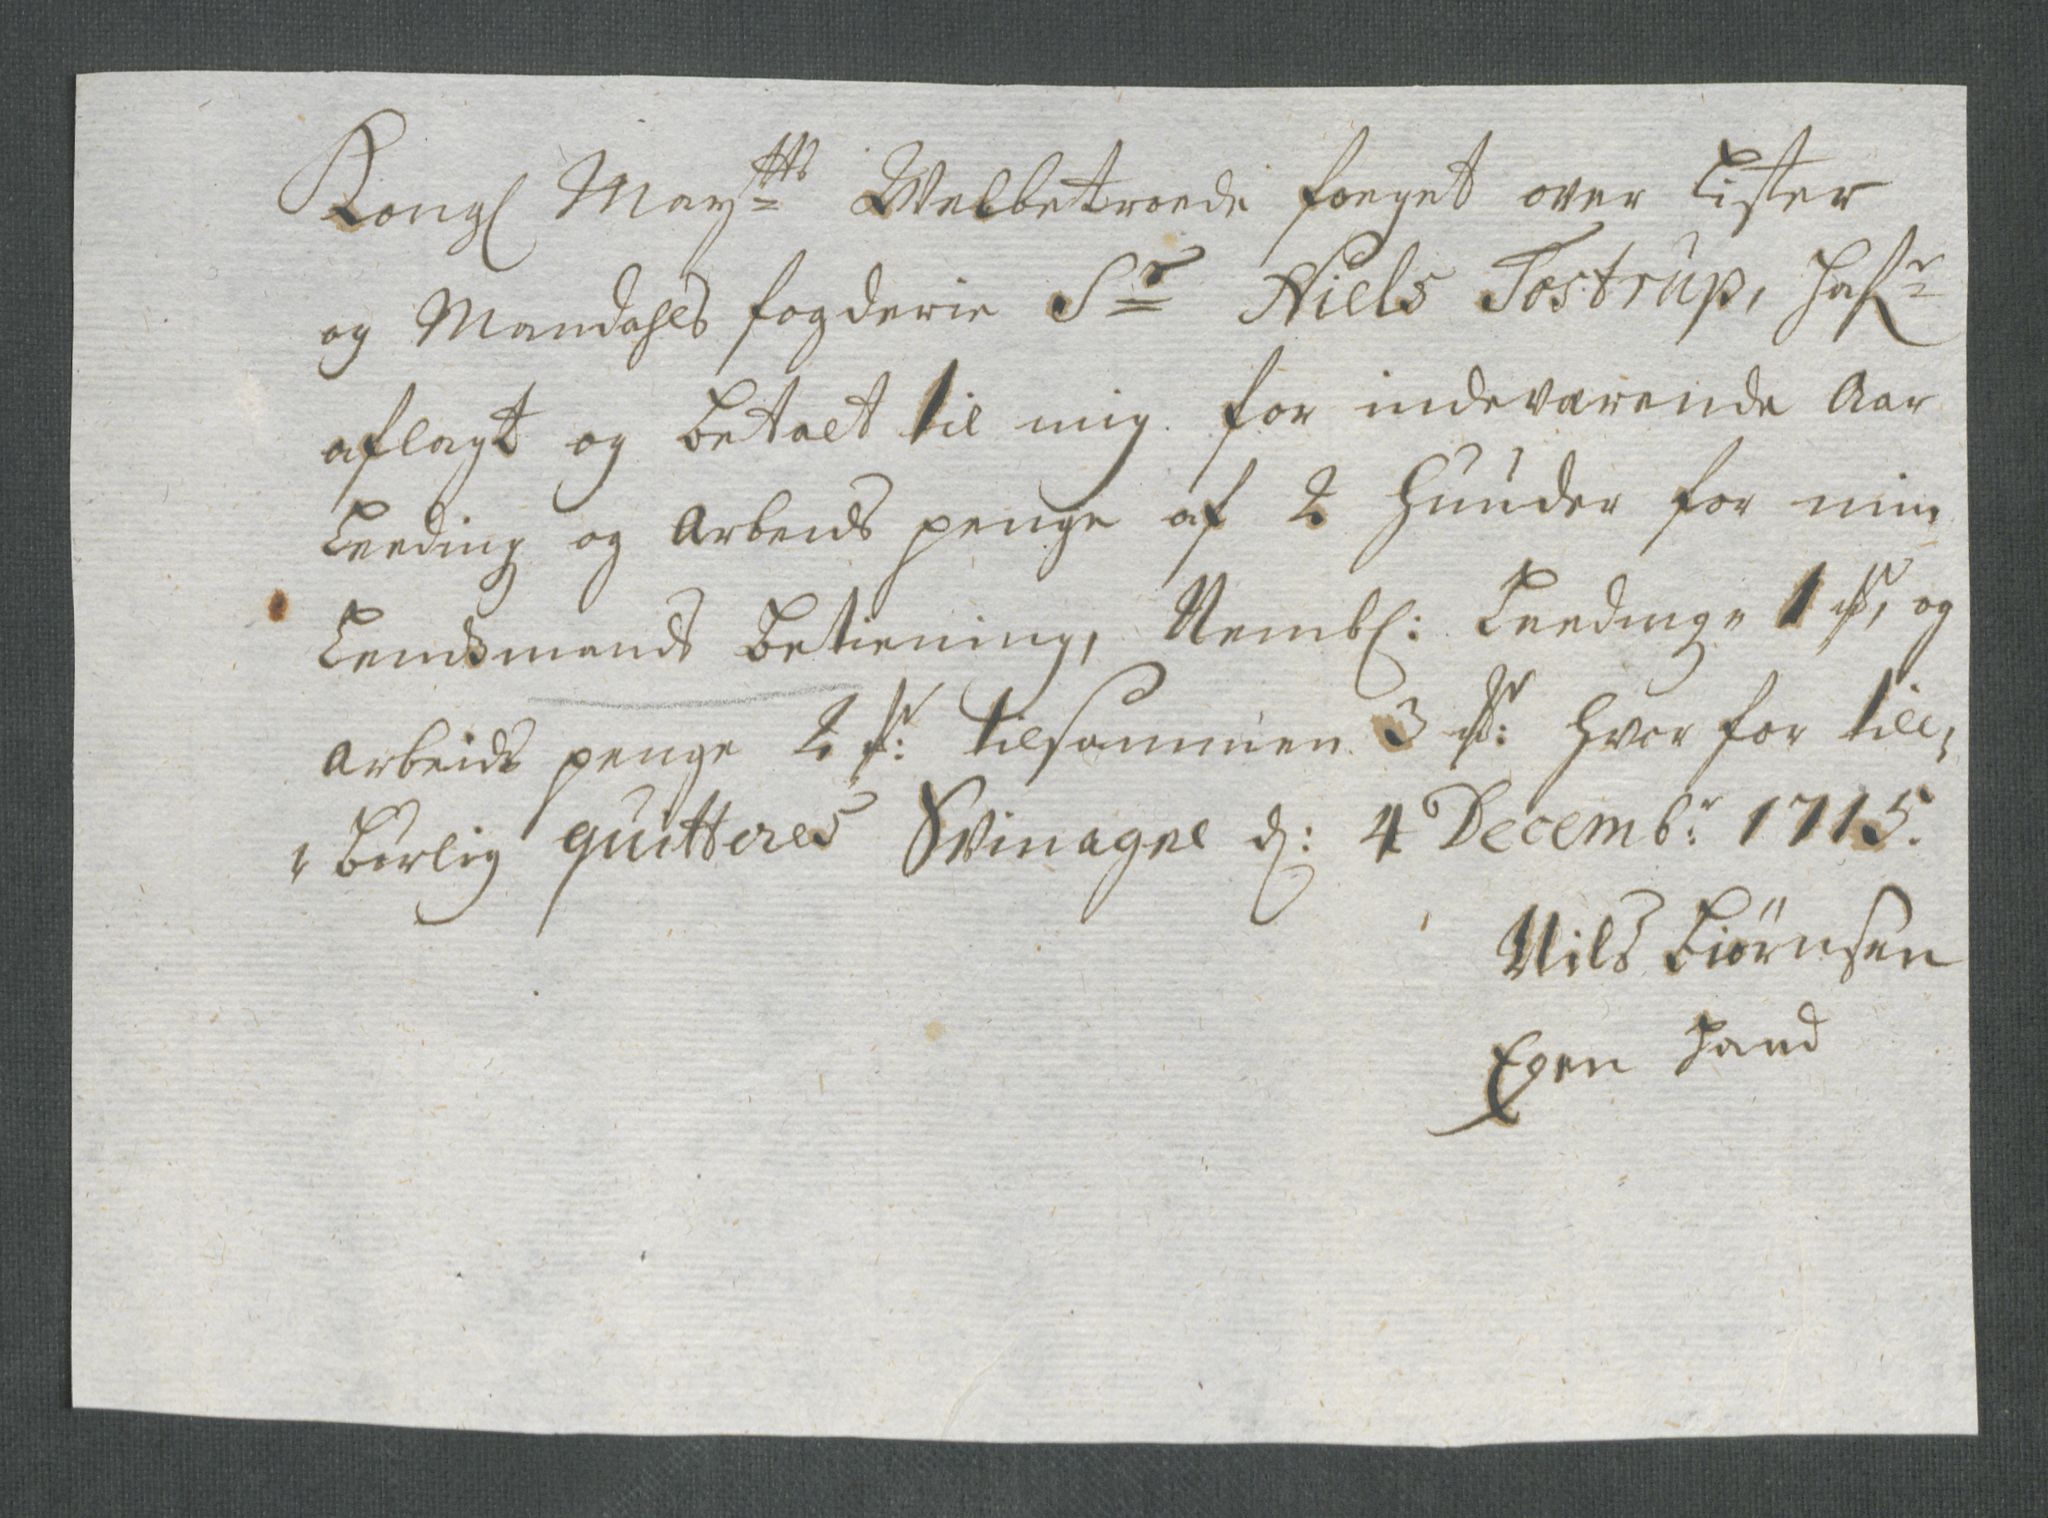 Kongl May^tts Welbetroede foeget over Lister
og Mandahls fogderie S^r Niels Tostrup, haf^r
aflagt og betalt til mig for indeværende Aar
Leeding og Arbeids penge af 2 Huuder for min
Lensmands betiening, Nembl: Leeding 1 og
Arbeids penge 2 tilsammen 3 hvor for till,
, børlig quitteres Svinagel d: 4 Decemb^r: 1715.
Nils Biörnsen
Egen Hand